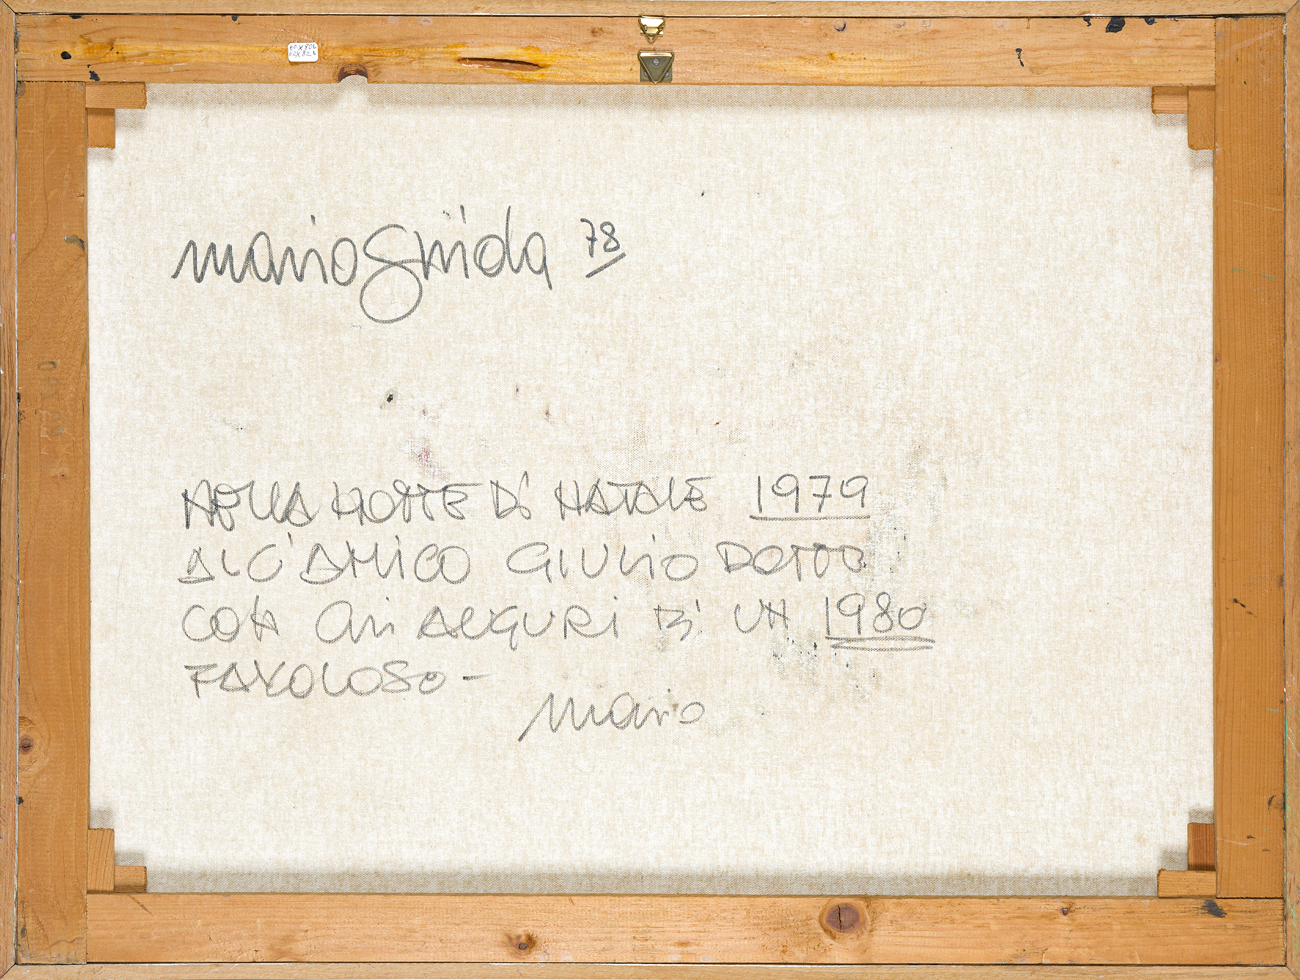 mario Guida 78
NELLA NOTTE DI NATALE 1979
ALL'AMICO GIULIO DOTTO
CON GLI AUGURI DI UN 1980
FAVOLOSO -
Mario